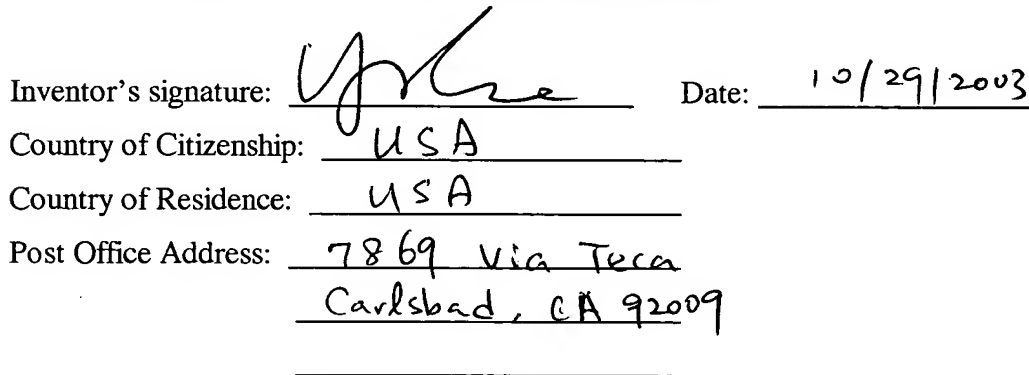 Inventor's signature: Date: 10/29/2003
Country of Citizenship: USA
Country of Residence: USA
Post Office Address: 7869 Via Teca
Carlsbad, CA 92009